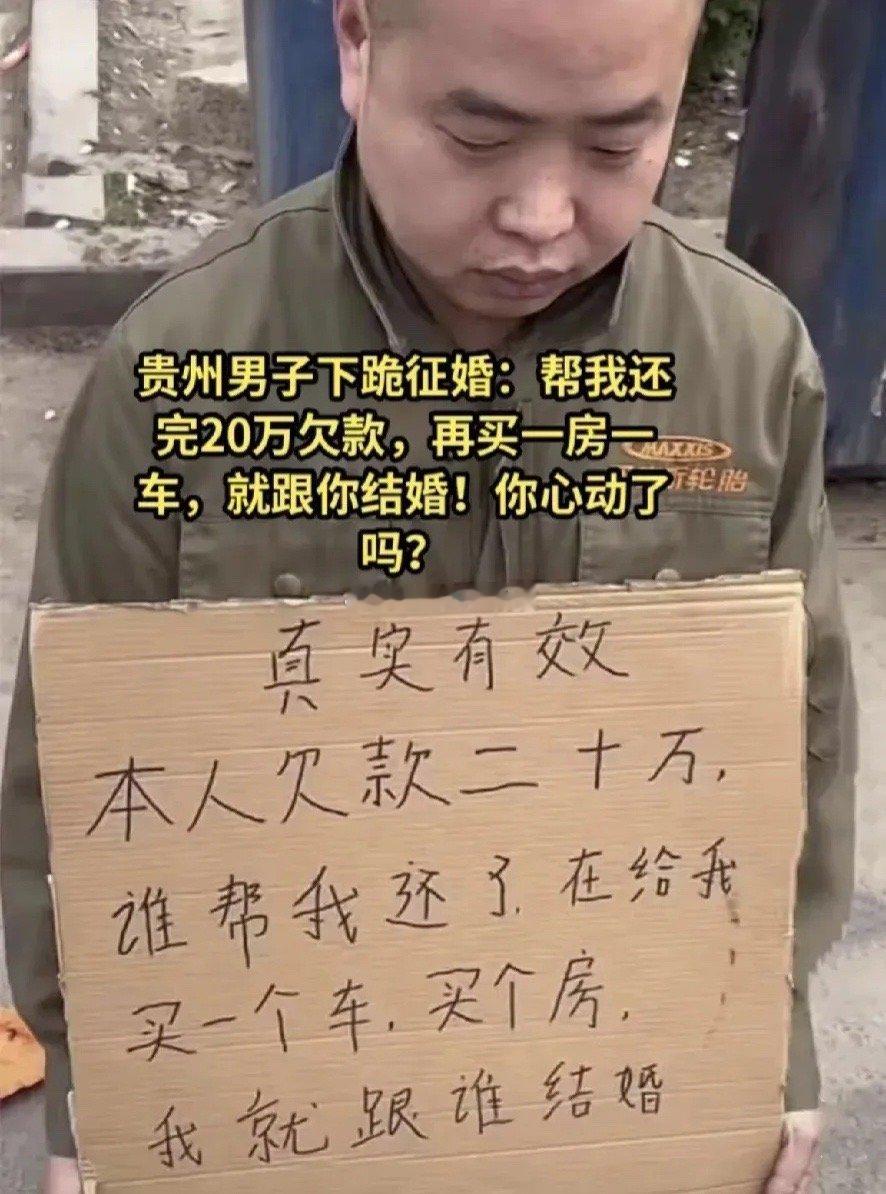 贵州男子下跪征婚：帮我还
完20万欠款，再买一房一
车，就跟你结婚！你心动了
吗？
MAXXIS
斯轮胎
真实有效
本人欠款二十万，
谁帮我还了，在给我
买一个车，买个房，
我就跟谁结婚